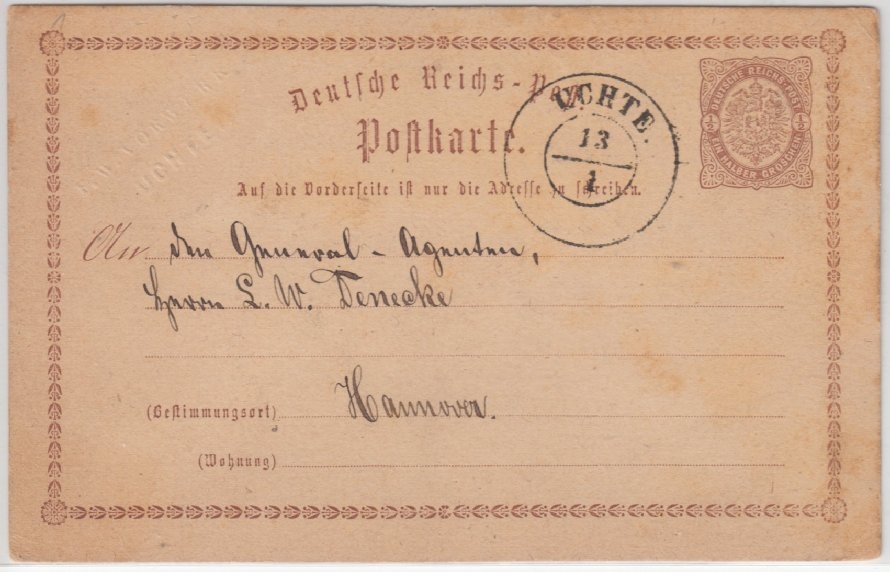 Deutsche Reichs-Post
Postkarte.
Auf die Vorderseite ist nur die Adresse zu schreiben.
UCHTE.
13
1
DEUTSCHE REICHS-POST
½ ½
EIN HALBER GROSCHEN
An den General-Agenten,
Herrn L. W. Denecke
(Bestimmungsort) Hannover.
(Wohnung)